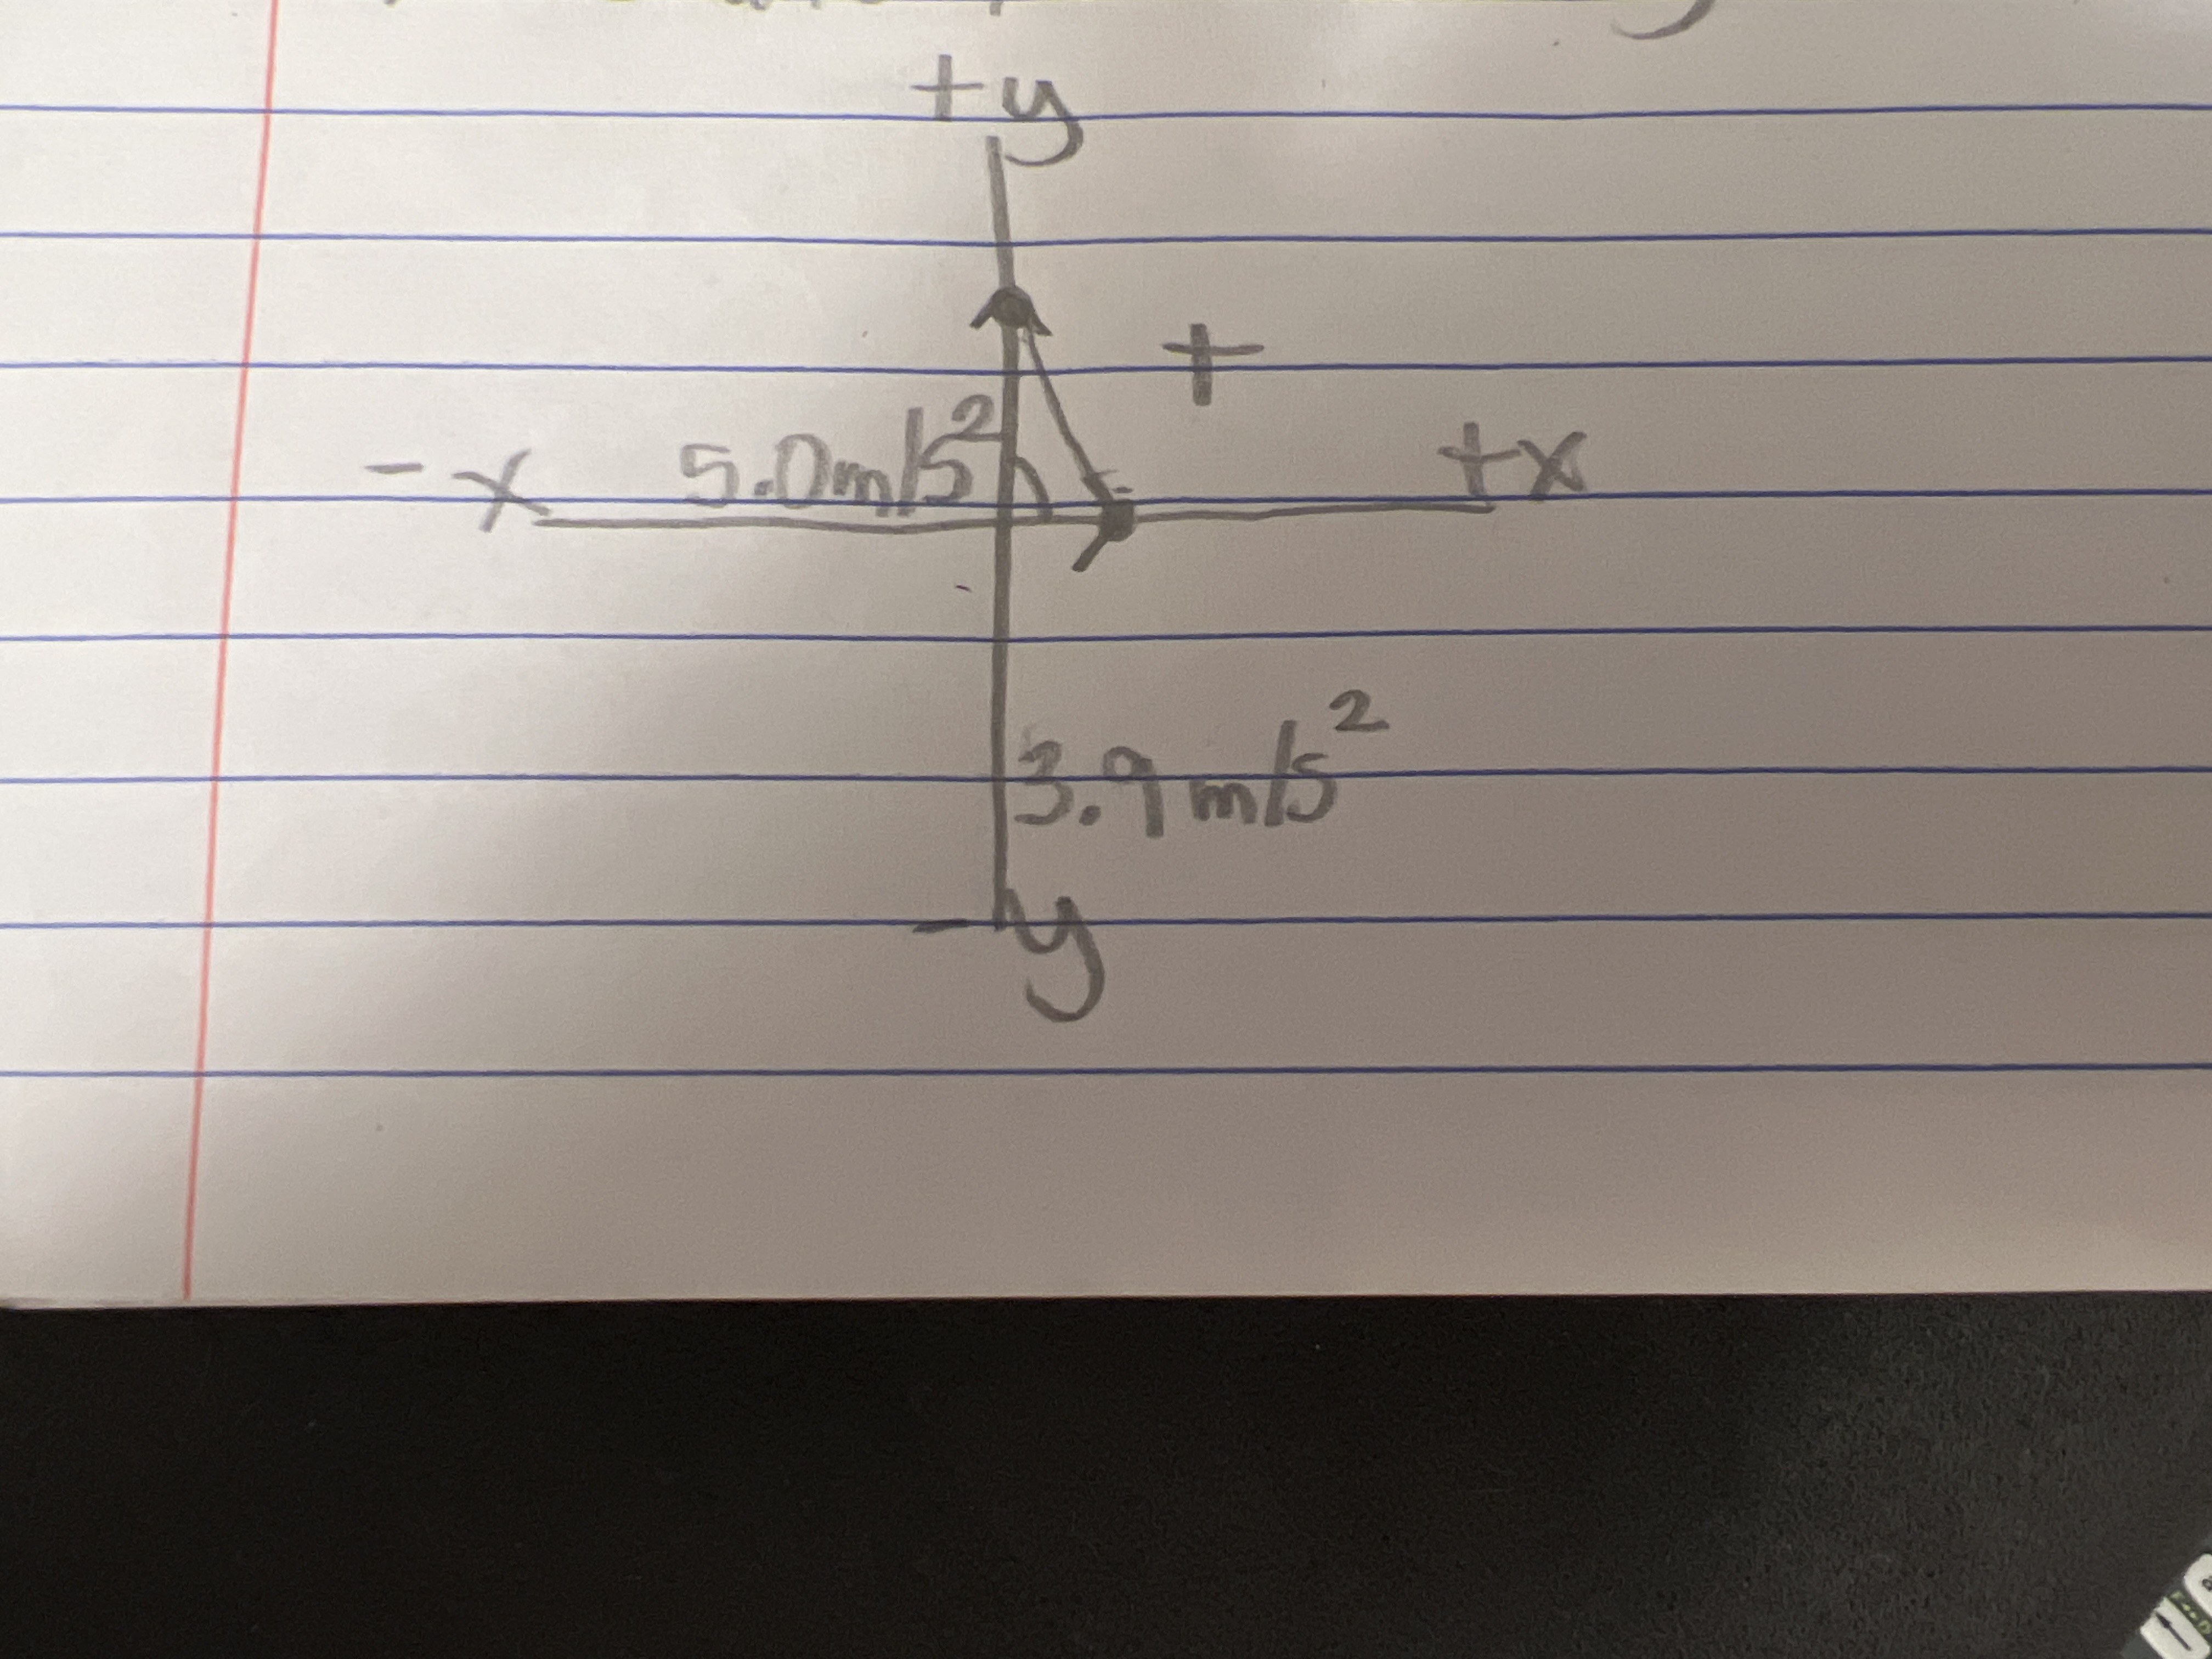 +y
+
-x 5.0m/s² +x
3.9m/s²
-y